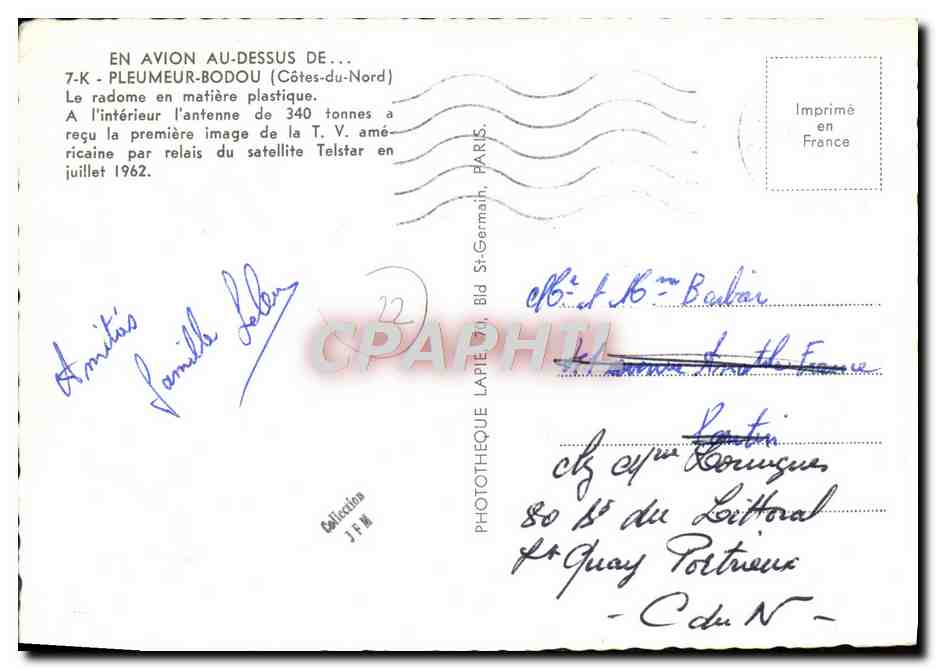 EN AVION AU-DESSUS DE...
7-K - PLEUMEUR-BODOU (Côtes-du-Nord)
Le radome en matière plastique.
A l'intérieur l'antenne de 340 tonnes a
reçu la première image de la T. V. amé-
ricaine par relais du satellite Telstar en
juillet 1962.
Imprimé
en
France
PHOTOTHEQUE LAPIE, 70, Bld St-Germain, PARIS.
22
Amitiés
famille
CPAPHIL
Collection
JFM
Mr et Mme Barbar
avenue Anatole France
Pantin
Mme
80 Bd du Littoral
St Quay Portrieux
- C du N -